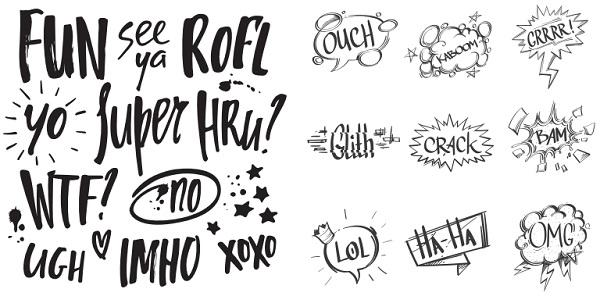 FUN see ya ROFL
yo Super HRU?
WTF? no
UGH IMHO XOXO
OUCH KABOOM! GRRRR!
Glith CRACK BAM
LOL HA-HA OMG